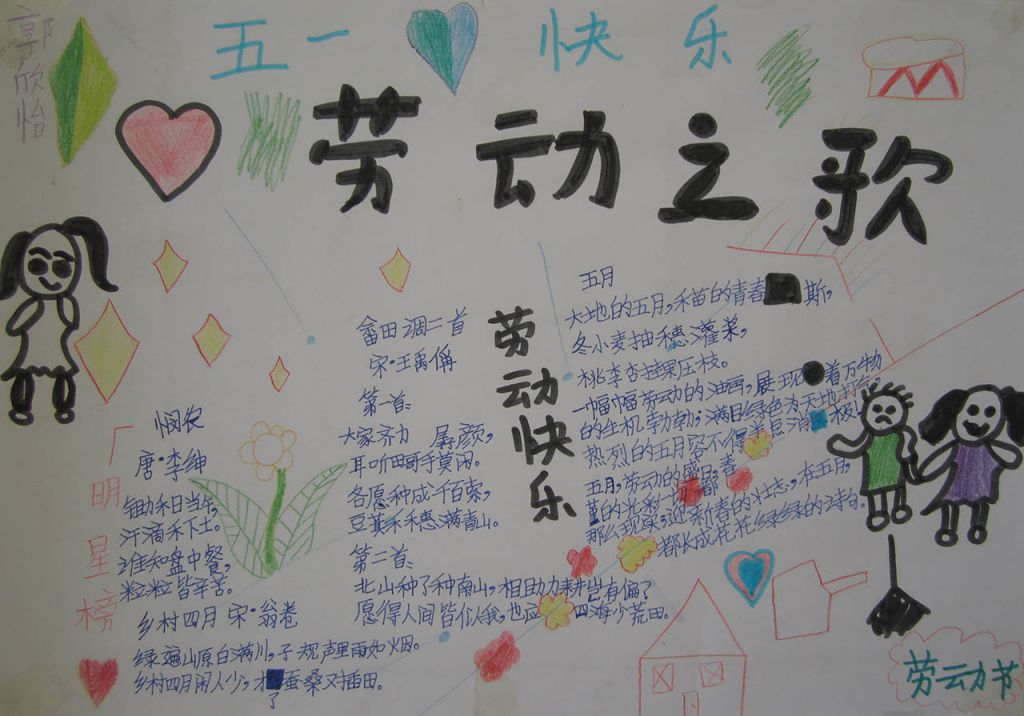 郭欣怡
五一快乐
劳动之歌
明星榜
悯农
唐·李绅
锄禾日当午,
汗滴禾下土。
谁知盘中餐,
粒粒皆辛苦。
乡村四月 宋·翁卷
绿遍山原白满川,子规声里雨如烟。
乡村四月闲人少,才了蚕桑又插田。
畲田调二首
宋·王禹偁
第一首:
大家齐力 孱颜,
耳听田歌手莫闲。
各愿种成千百索,
豆萁禾穗满青山。
第二首:
北山种了种南山,相助力耕岂有偏?
愿得人间皆似我,也应四海少荒田。
劳动快乐
五月
大地的五月,禾苗的青春 斯,
冬小麦抽穗灌浆,
桃李杏挂果压枝。
一幅幅劳动的油画,展现 着万物
的生机勃勃;满目绿色为天地打
热烈的五月容不得 消 极
五月,劳动的盛
的光彩 都
那么现实,迎新春的壮志,在五月,
都长成花花绿绿的诗句。
劳动节